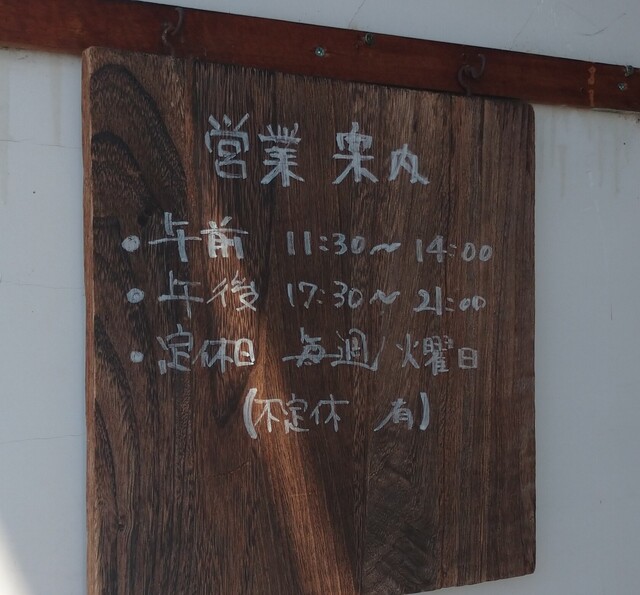 営業 案内
●午前 11:30～14:00
●午後 17:30～21:00
●定休日 毎週 火曜日
(不定休 有)